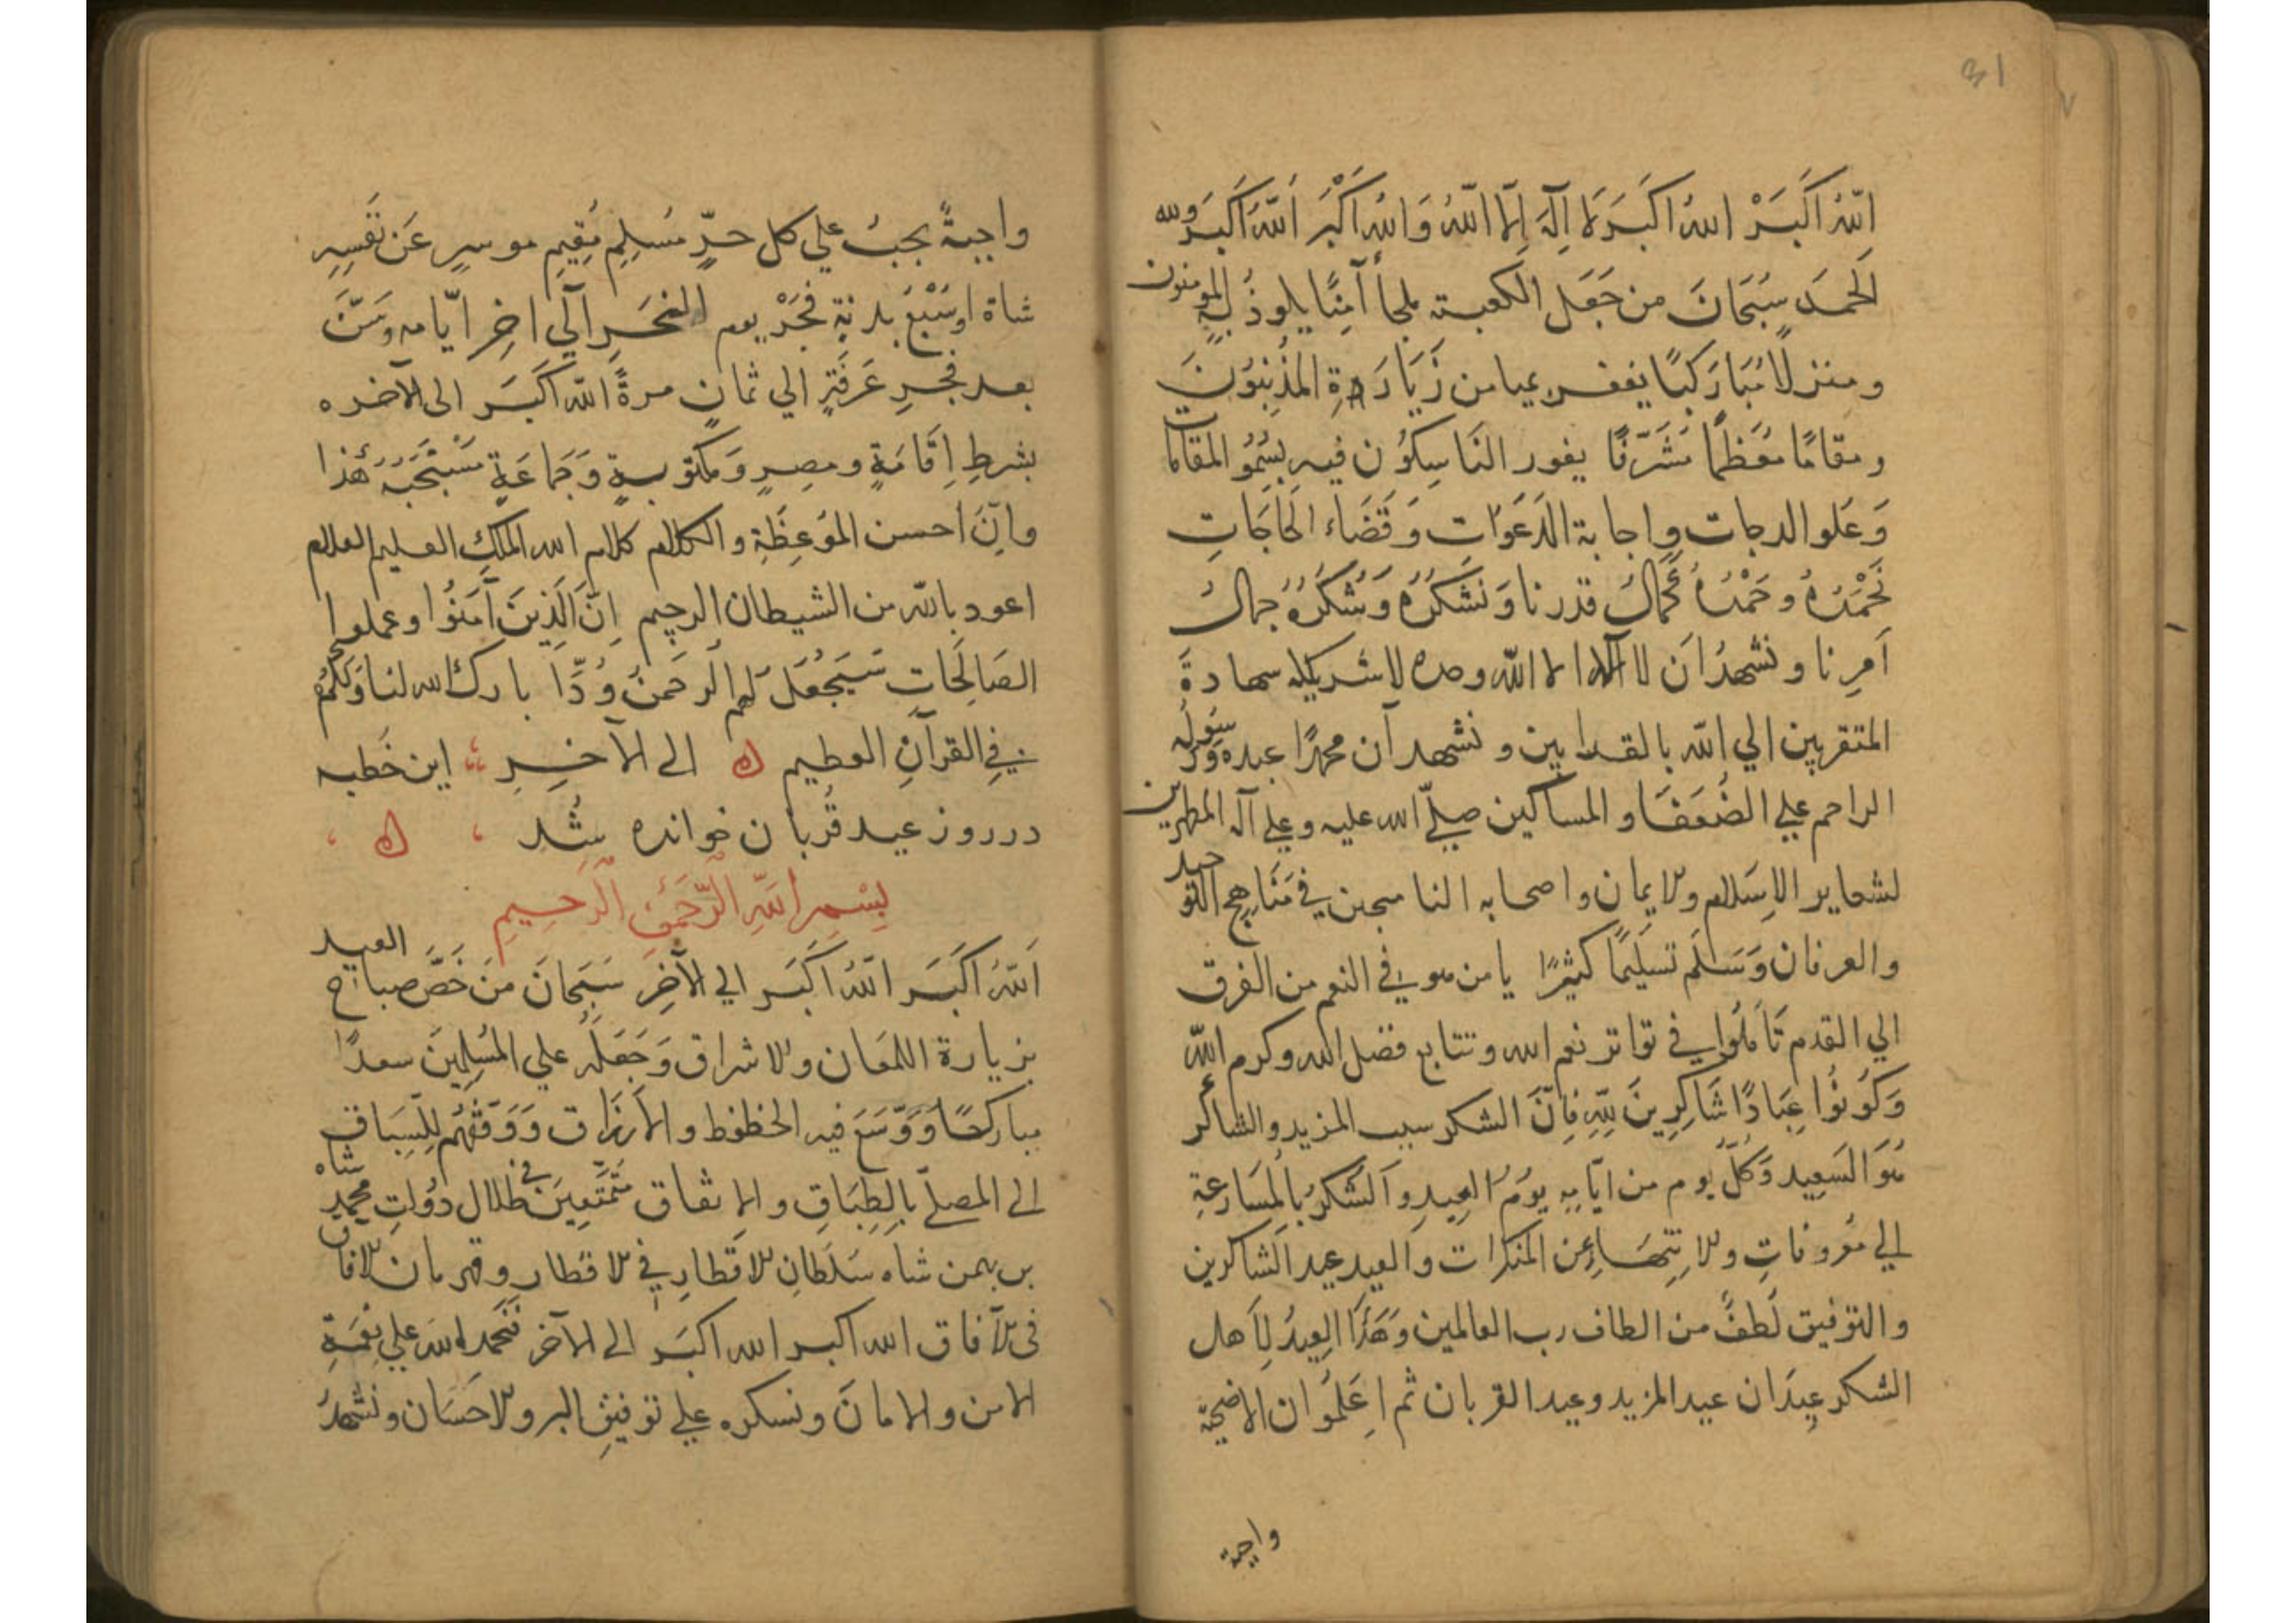 31
اللّهُ اَكَبَرْ اللهُ اكَبَرَ لا اِلَهَ اِلّا اللّهُ وَاللهُ اَكْبَر اَللّهُ اَكَبَر ولله
الحَمدَ سِبَحَانَ من جَعَل الكعبة ملجأ آمِنًا يلوذُ بِهِ المومنون
ومنزلًا مُبَارَكًا يغفر بميامن زَيَارَةِ المذُنِبُونَ
ومقامًا مُعَظمًا مُشَرَّفًا يفور النَاسِكوُن فيه بسُمُو المقامات
وَعَلو الدرجات واِجابة الدَعَوَات وَقَضَاء الحَاجَاتِ
نَحْمَدُهُ وحَمْدُهُ كَمالُ قدرنا وَنشَكُرَهُ وَشُكَرُهُ جمالُ
اَمرِنا ونشهدُ اَن لا آله الا الله وحده لا شريكله سهادةَ
المتقربين الي الله بالقرابين ونشهد آن محمدًا عبده وَرَسُولُه
الراحم علي الضُعَفَا والمساكين صلّي الله عليه وعلي آله المطهرين
لشعاير الاِسَلام ولايمان واصحابه الناسجين في مَنَاهِج التوحيد
والعرفان وَسَلَم تسَليمًا كثيرًا يا من هو في النعم من الفرق
الي القدم تَاَمَلوُا في تواتر نعم الله وتتابع فضل الله وكرم الله
وَكوُنوُا عِبَادًا شَاكِرِينَ لِلّهِ فاِنّ الشكر سبب المزيد والشاكر
هُوَ السَعِيد وَكلُّ يوم من ايّامِه يومُ العِيدِ والشَكرُ باِلمُسَارعةِ
اِلي مَعُروفاتِ ولانتِهَاءِ عن المنكرات والعيد عيد الشاكرين
والتوفيق لُطفٌ من الطاف رب العالمين وهَذَا العِيدُ لِاَهل
الشكر عِيدَان عيد المزيد وعيد القربان ثم اِعَلمَوا ان الاضحيّة
واجبة
واجبةٌ يجبُ علي كل حرٍّ مُسلِمٍ مُقِيمٍ موسرٍ عَن نَفسِهِ
شاة او سَبْعُ بدنةٍ فَجْرَ يوم النَحَرِ اَلي اخِرِ ايّامه وسَنَّ
بعد فجرِ عَرفَةٍ الي ثمانٍ مرةً الله اَكبَر الي الآخره
بشرطِ اِقَامَةٍ ومصِرٍ وَمكتوبةٍ وَجَماعَةٍ مُسَتْحَبَةٍ هَذا
وانَّ اَحسن الموَعِظَةِ والكلام كلام الله الملكِ العليم العلام
اعود بالله من الشيطان الرجيم اِنّ الَذِينَ آمَنُوا وعملوا
الصَالِحَاتِ سَيَجَعُلَ لهم الرحمَنُ وُدًّا بارك الله لنا وَلَكمُ
في القرآنِ العطيم ه الي الآخِرِ ؛ اين خَطبه
در روز عيد قُربان خوانده شُد ، ه ،
بِسْمِ اللهِ الرَّحمَنِ الرَّحِيمِ
اَللّهُ اَكبَر اللهُ اكَبَر الي الآخِر سَبَحَانَ مَن خَصَّ صباح العيد
بزيارة اللمَعَان ولاشراق وَجَعَلَهُ علي المسُلِمِينَ سعدًا
مباركًا وَوَسَعَ فيه الحظوظ والارَزاق وَوَفَّقَهُم لِلّسِبَاق
الي المصلّي باِلطِبَاقِ والاتفاق مُتَمَتِعِينَ في ظلال دوُلتِ محمد شاه
بن بهمن شاه سُلَطانِ لاقطارِ في لاقطار وقهرمان لافاق
في لآفاق الله اكبر الله اكبَر الي الآخر نَحمَد الله علي نِعَمةِ
الامن والامانَ ونسكره علي توفيقِ البر ولاحَسَان ونشهدُ